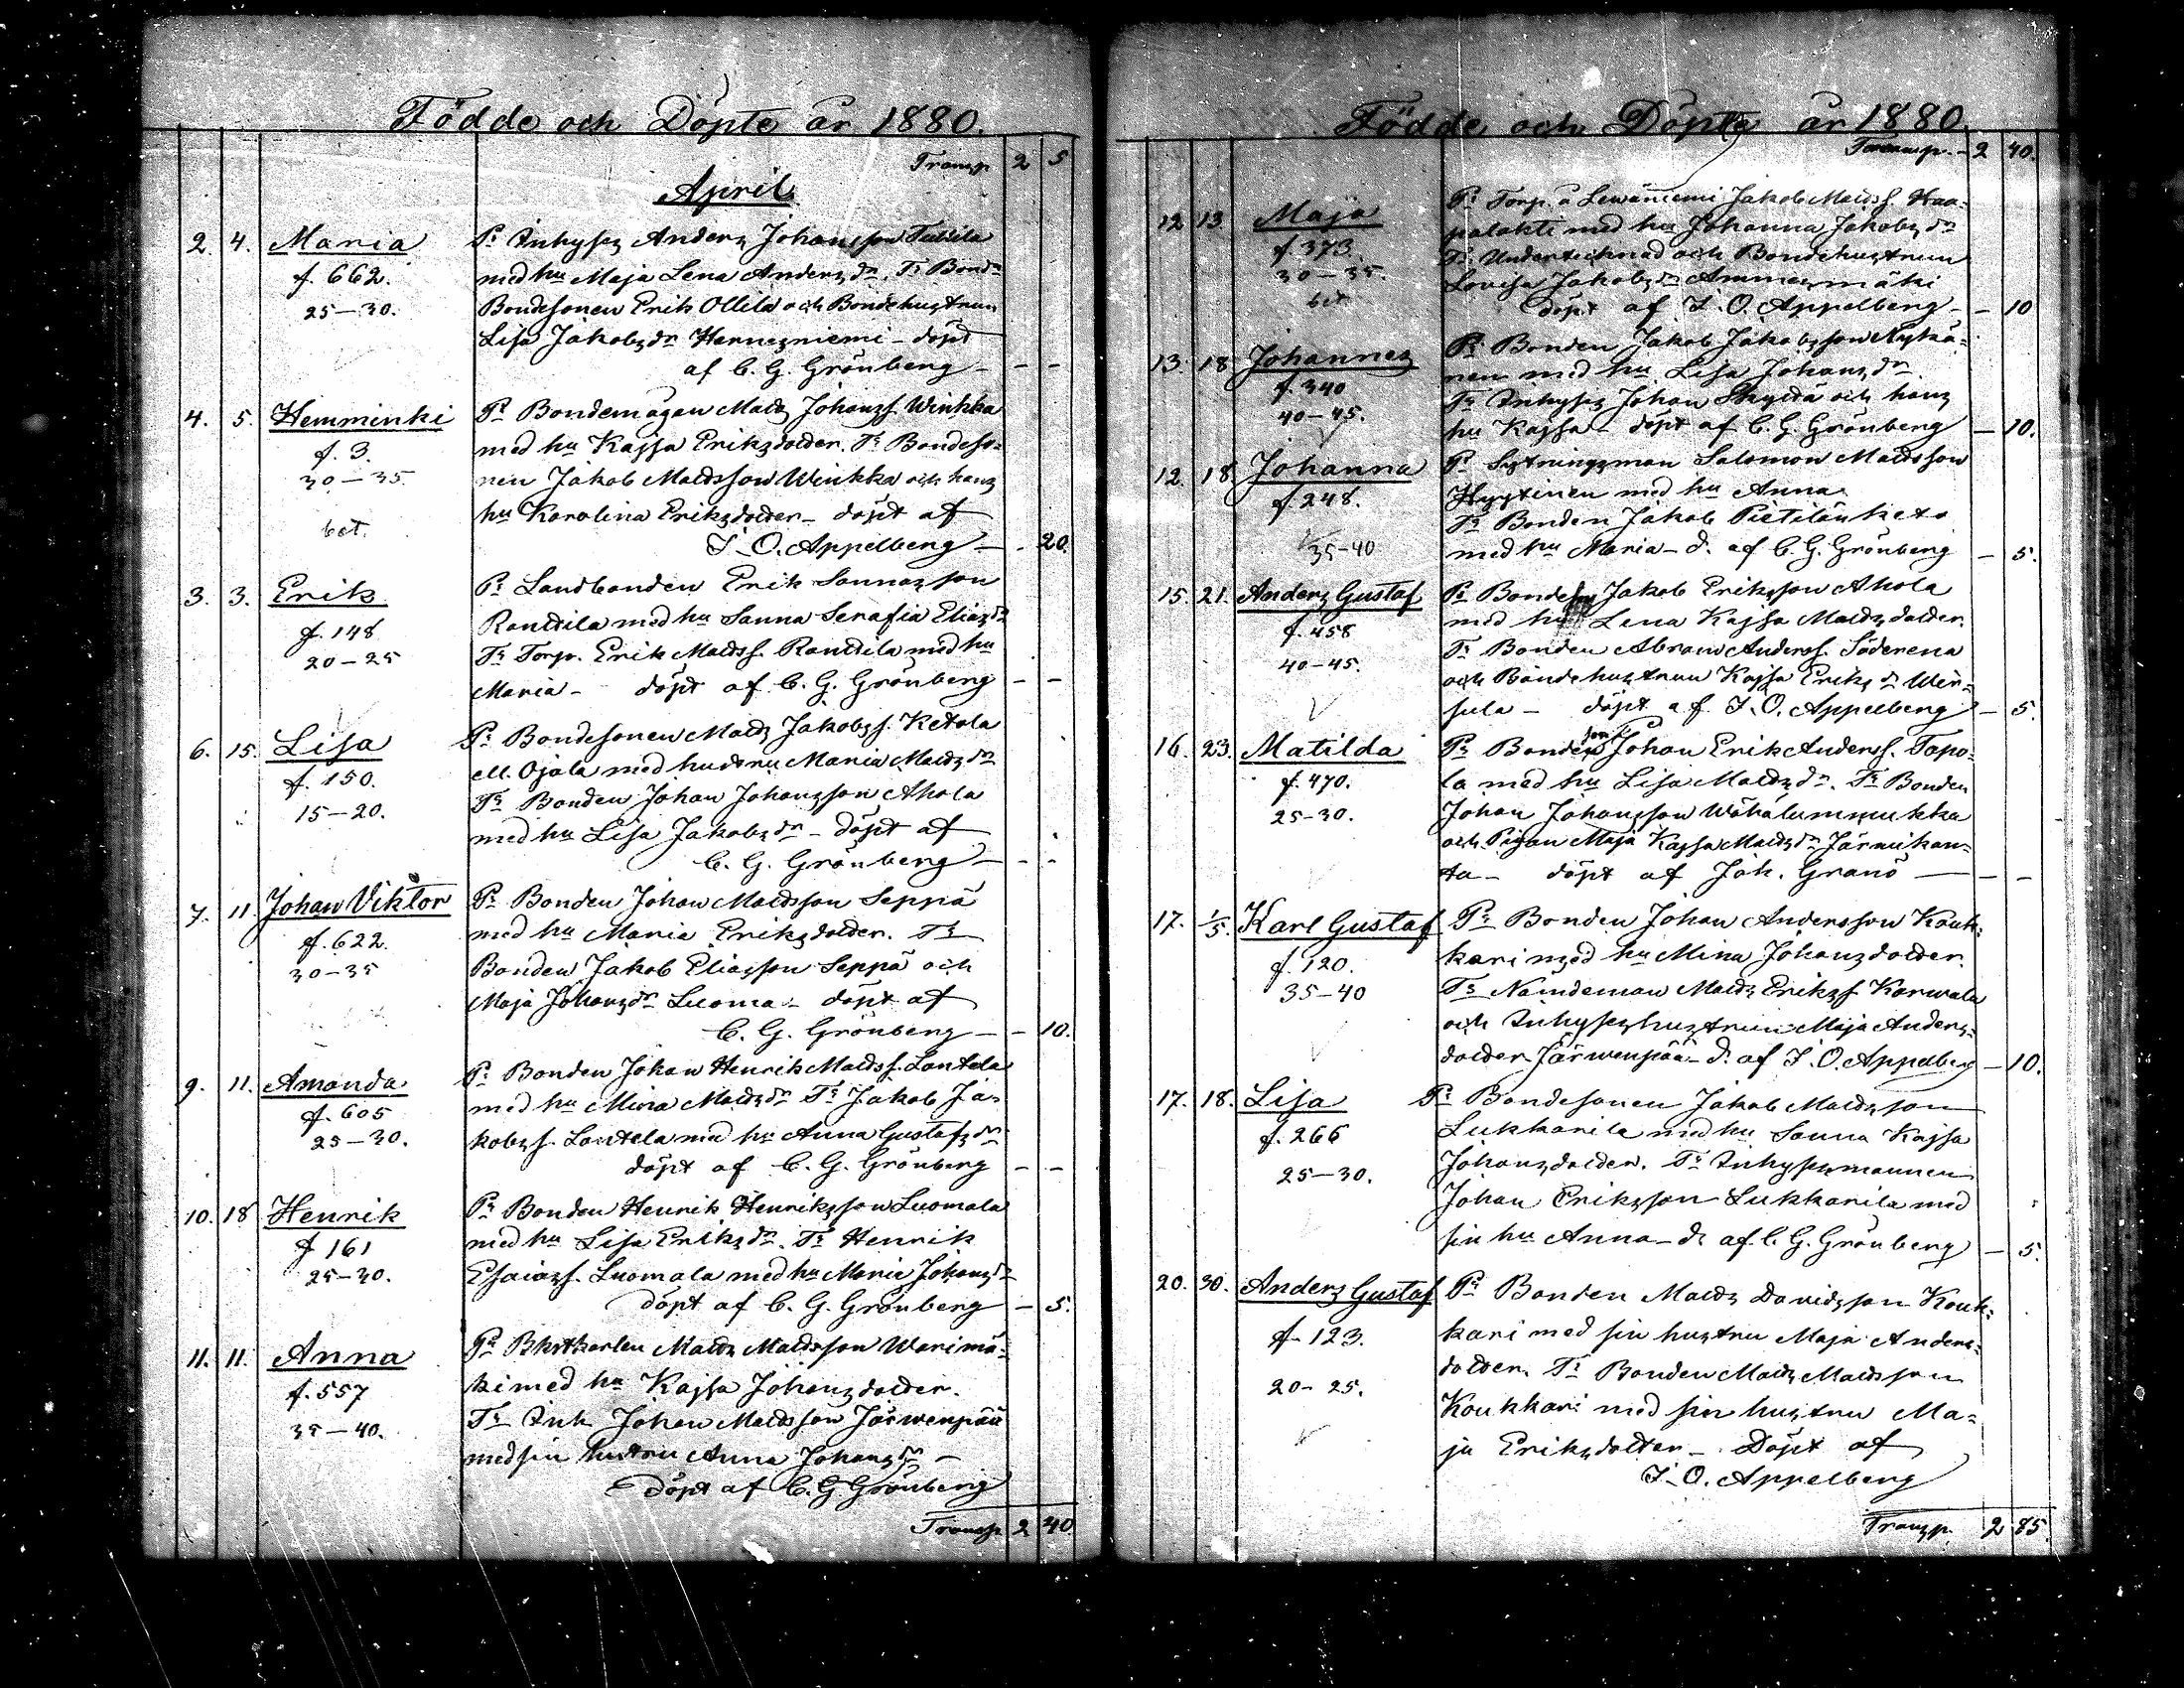 Födde och Döpte år 1880.
Transp. 2 5
April
2. 4. Maria Pr Inhyses Anders Johansson Tulila
f. 662. med hu Maja Lena Anders dr. Tr Bond-
25-30. Bondesonen Erik Ollila och Bondehustrun
Lisa Jakobs dr Hannesniemi - döpt
af C. G. Grönberg - - -
4. 5. Hemminki Pr Bondemågen Matts Johans s. Winkka
f. 3. med hu Kajsa Eriksdotter. Tr Bondeso-
30-35. nen Jakob Mattsson Winkka och hans
hu Karolina Eriksdotter - döpt af
bet. I. O. Appelberg - - 20.
3. 3. Erik Pr Landbonden Erik Sannasson
f. 148 Rantila med hu Sanna Serafia Elias dr
20-25 Tr Torp. Erik Matts s. Rantila med hu
Maria - döpt af C. G. Grönberg - -
6. 15. Lisa Pr Bondesonen Matts Jakobs s. Ketola
f. 150. M. Ojala med hustru Maria Matts dr
15-20. Tr Bonden Johan Johansson Ahola
med hu Lisa Jakobs dr - döpt af
C. G. Grönberg - - -
7. 11. Johan Viktor Pr Bonden Johan Mattsson Seppä
f. 622. med hu Maria Eriksdotter. Tr
30-35 Bonden Jakob Eliasson Seppä och
Maja Johans dr Luoma - döpt af
C. G. Grönberg - - 10.
9. 11. Amanda Pr Bonden Johan Henrik Matts s. Lantela
f. 605 med hu Mina Matts dr Tr Jakob Ja-
25-30. kobs s. Lantela med hu Anna Gustafs dr
döpt af C. G. Grönberg - -
10. 18 Henrik Pr Bonden Henrik Henriksson Luomala
f 161 med hu Lisa Eriks dr. Tr Henrik
25-30. Esaias s. Luomala med hu Maria Johans dr
döpt af C. G. Grönberg - 5.
11. 11. Anna Pr Matts Mattsson Warimä-
f. 557 ki med hu Kajsa Johansdotter.
35-40. Tr Inh Johan Mattsson Järwenpää
med sin hustru Anna Johans dr -
döpt af C. G. Grönberg
Transp. 2 40
Födde och Döpte år 1880.
Transp. - 2 40.
12 13 Maja Pr Torp. å Lewäniemi Jakob Matts s. Haa-
f. 373. palahti med hu Johanna Jakobs dr
30-35. Tr Undertecknad och Bondehustrun
bet Lovisa Jakobs dr Ammesmäki
döpt af I. O. Appelberg - - 10
13. 18 Johannes Pr Bonden Jakob Jakobsson Nykä-
f. 340 nen med hu Lisa Johans dr
40-45. Tr Inhyses Johan och hans
hu Kajsa - döpt af C. G. Grönberg - 10.
12. 18. Johanna Pr Sytningsman Salomon Mattsson
f. 248. Hyytinen med hu Anna
Tr Bonden Jakob Pietilänketo
35-40 med hu Maria - d. af C. G. Grönberg - 5.
15. 21. Anders Gustaf Pr Bonden Jakob Eriksson Ahola
f. 458 med hu Lena Kajsa Mattsdotter.
40-45. Tr Bonden Abram Anders s. Söderena
och Bondehustrun Kajsa Eriks dr Wir-
sula - döpt af I. O. Appelberg - 5.
16. 23. Matilda Pr Bondeson Johan Erik Anders s. Topo-
f. 470. la med hu Lisa Matts dr. Tr Bonden
25-30. Johan Johansson Wähälummukka
och Pigan Maja Kajsa Matts dr Järnikan-
ta - döpt af Joh. Granö - - -
17. 1/5. Karl Gustaf Pr Bonden Johan Andersson Kouk-
f. 120. kari med hu Mina Johansdotter.
35-40 Tr Nämndeman Matts Eriks s Karwala
och Inhyseshustrun Maja Anders-
dotter Järwenpää - d. af I. O. Appelberg - 10.
17. 18. Lisa Pr Bondesonen Jakob Mattsson
f. 266 Lukkarila med hu Sanna Kajsa
25-30. Johansdotter. Tr Inhysesmannen
Johan Eriksson Lukkarila med
sin hu Anna - d. af C. G. Grönberg - 5.
20. 30. Anders Gustaf Pr Bonden Matts Davidsson Kouk-
f. 123. kari med sin hustru Maja Anders-
20-25. dotter. Tr Bonden Matts Mattsson
Koukkari med sin hustru Ma-
ja Eriksdotter - Döpt af
I. O. Appelberg
Transp. 2 85